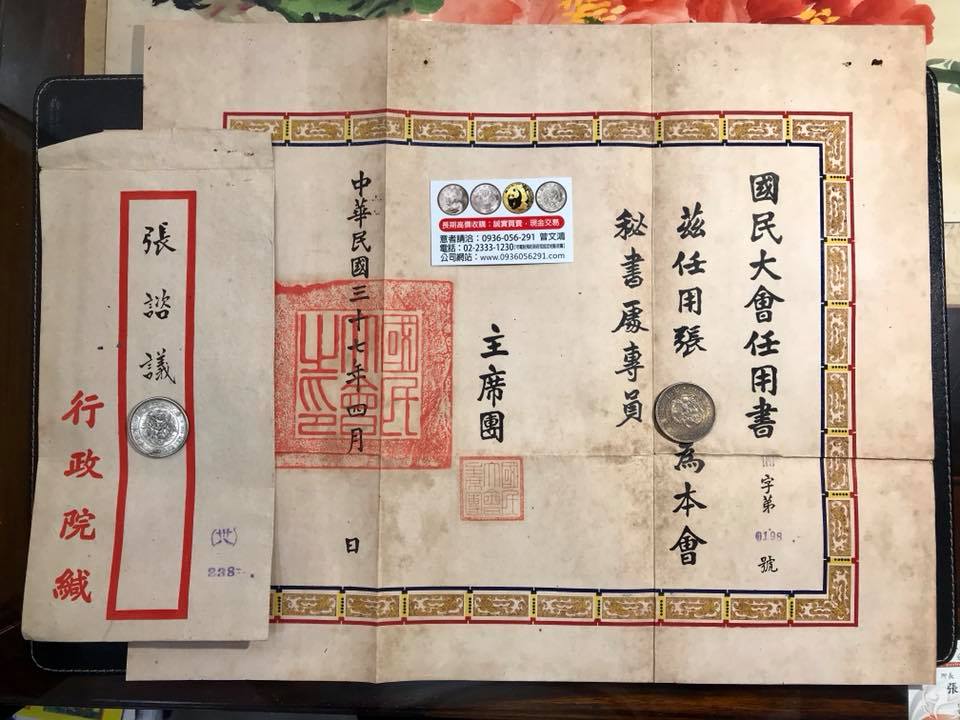 國民大會任用書
字第
0198
號
茲任用張
為本會
秘書處專員
主席團
中華民國三十七年四月
日
國民
大會
之印
長期高價收購：誠實買賣．現金交易
意者請洽：0936-056-291 曾文鴻
電話：02-2333-1230
公司網站：www.0936056291.com
張諮議
行政院緘
(卅)
238
張